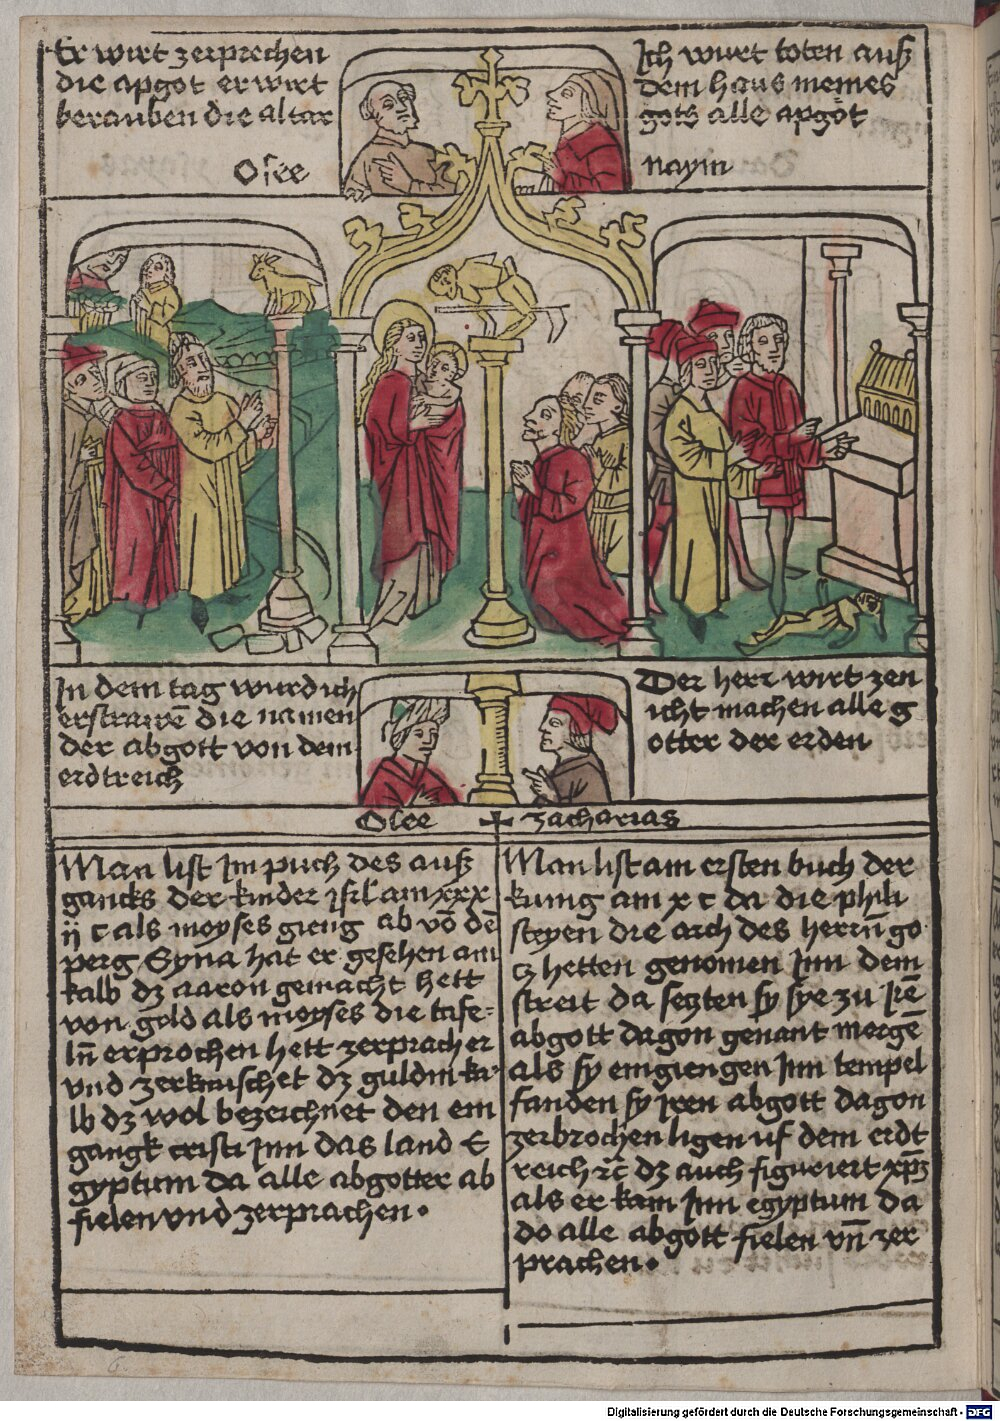 Er wirt zerprechen
die apgot er wirt
berauben die altar
Osee
Ich wurt toten auß
dem haus meines
gots alle apgöt
naym
In dem tag wurd ich
erstrawē die namen
der abgott von dem
erdtreich
Der herr wirt zen
icht machen alle g
otter der erden
Osee
zacharias
Man list im puch des auß
gancks der kinder isrl am xxx
ij c als moyses gieng ab vō dē
perg Syna hat er gesehen am
kalb dz aaron gemacht hett
von gold als moyses die tafe=
ln̄ erprochen hett zerprach er
vnd zerknischet dz guldin ka
lb dz wol bezeichnet den ein
gangk cristi jnn das land E
gyptum da alle abgotter ab
fielen vnd zerprachen ·
Man list am ersten buch der
kunig am x c da die phili
steyen die arch des herrn̄ go
cz hetten genomen jnn dem
streit da seczten sy sye zu jrē
abgott dagon genant morgē
als sy eingiengen jnn tempel
fanden sy jren abgott dagon
zerbrochen ligen uf dem erdt
reich rc̄ dz auch figuriert xp̄z
als er kam jnn egyptum da
do alle abgott fielen vn̄ zer
prachen ·
Digitalisierung gefördert durch die Deutsche Forschungsgemeinschaft - DFG